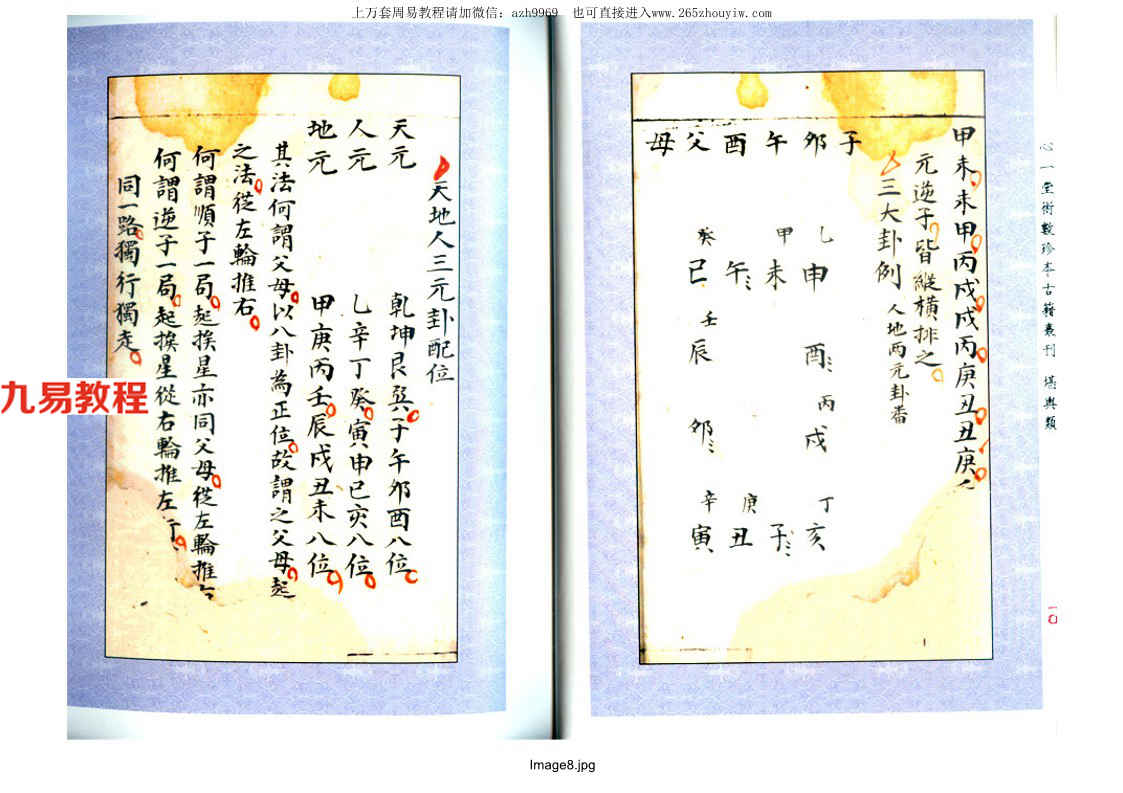 上万套周易教程请加微信：azh9969 也可直接进入www.265zhouyiw.com
心一堂術數珍本古籍叢刊 堪輿類
一〇
甲未未甲丙戌戌丙庚丑丑庚
元逆子皆縱橫排之
三大卦例 人地兩元卦畨
子 卯 午 酉 父 母
乙 甲 癸
申 未 午 巳
壬
酉 辰
丙
戌 卯
丁 庚 辛
亥 子 丑 寅
天地人三元卦配位
天元 乾坤艮巽子午卯酉八位
人元 乙辛丁癸寅申巳亥八位
地元 甲庚丙壬辰戌丑未八位
其法何謂父母以八卦為正位故謂之父母起
之法從左輪推右
何謂順子一局起挨星亦同父母從左輪推右
何謂逆子一局起挨星從右輪推左行
同一路獨行獨走
九易教程
Image8.jpg